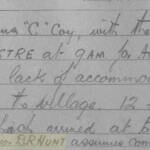 "C" Coy, with the
at 9 AM for
lack of accommo
to village. 12 -
had arrived at
BRAUNT assumes com